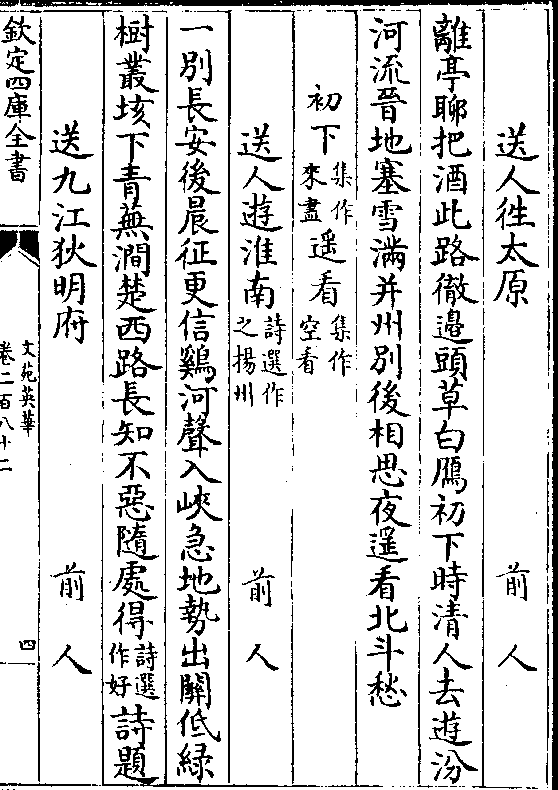 送人徃太原　前人
離亭聊把酒此路徹邉頭草白鴈初下時清人去遊汾
河流晉地塞雪滿并州別後相思夜遥看北斗愁
初下集作來盡遥看集作空看
送人遊淮南詩選作之揚州　前人
一別長安後晨征更信鷄河聲入峽急地勢出關低緑
樹叢垓下青蕪澗楚西路長知不惡隨處得詩選作好詩題
送九江狄明府　前人
欽定四庫全書
文苑英華
卷二百八十二
四